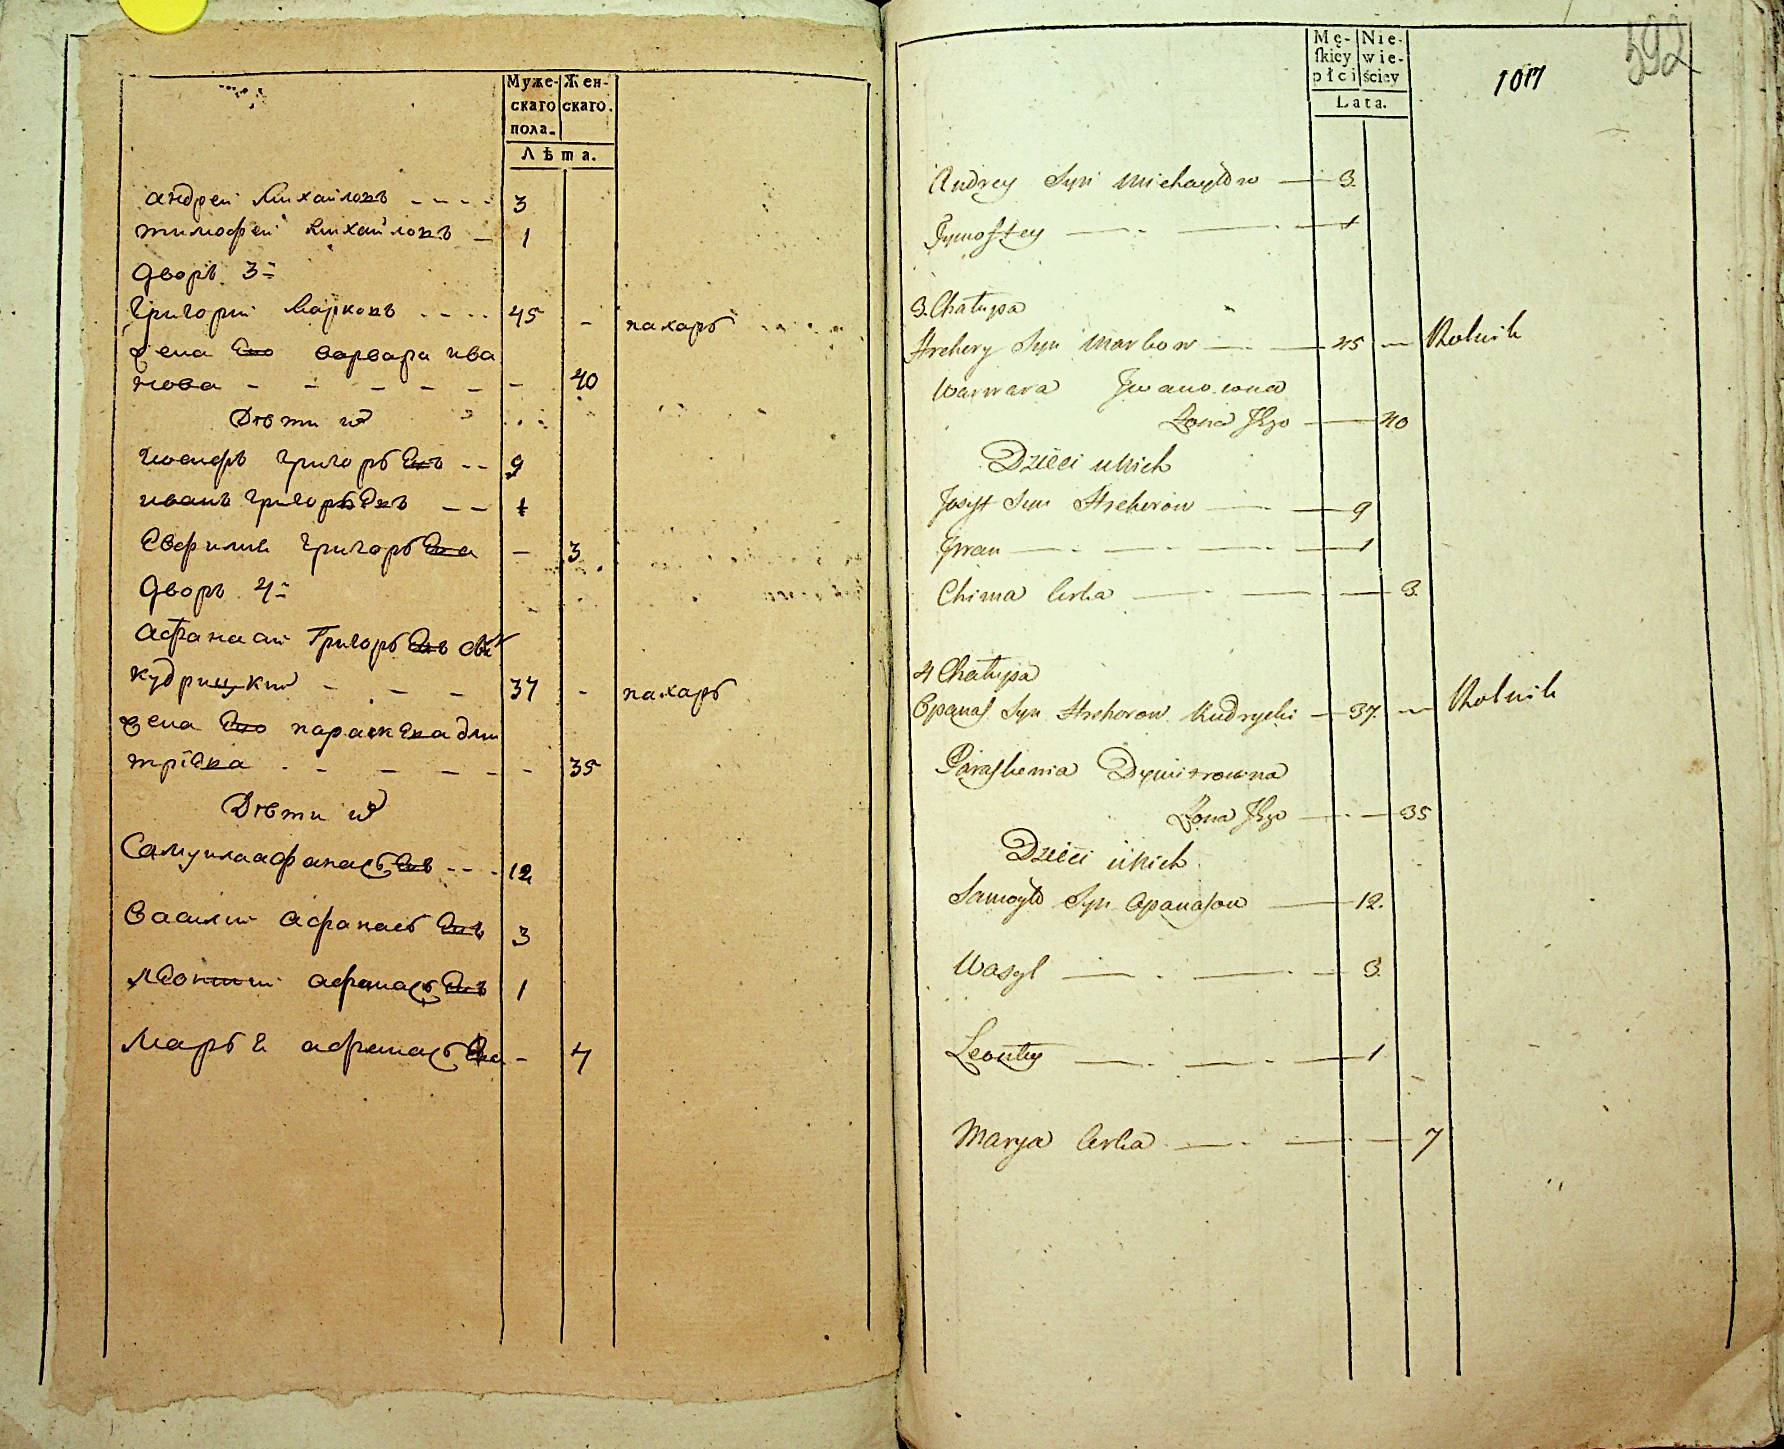 Муже-
скаго
пола.
Жен-
скаго.
Лѣта.
Андрей Михайловъ - - - - 3
Тимофей Михайловъ - 1
Дворъ 3й
Григорий Марковъ - - - - 45 - пахарь
Жена Ево Варвара Ива
нова - - - - - - - 40
Дѣти их
Иосифъ Григорьевъ - - 9
Иванъ Григорьевъ - - 1
Евфимия Григорьева - 3
Дворъ 4й
Афанасий Григорьевъ сын
Кудрицкий - - - 37 - пахарь
Жена Ево Параскева Дми
тріева - - - - - - 35
Дѣти их
Самуила Афанасьевъ - - - 12
Василий Афанасьевъ 3
Леонтий Афанасьевъ 1
Марья Афанасьева - 7
Mę-
skiey
płci
Nie-
wie-
ściey
Lata.
1017
592
Andrey Syn Michayłow — 3.
Tymoftey — . — . — 1
3. Chałupa
Hrehory Syn Markow — . — 45 — Rolnik
Warwara Iwanowna
Żona Jego — 40
Dzieci u Nich
Josyf Syn Hrehorow — . — 9
Iwan — . — . — . — 1
Chima Corka — . — . — 3.
4 Chałupa
Opanas Syn Hrehorow Kudrycki — 37. — Rolnik
Paraskewia Dymitrowna
Żona Jego — . — 35
Dzieci u Nich
Samoyło Syn Opanasow — 12.
Wasyl — . — . — 3.
Leonty — . — . — 1
Marya Corka — . — . — 7